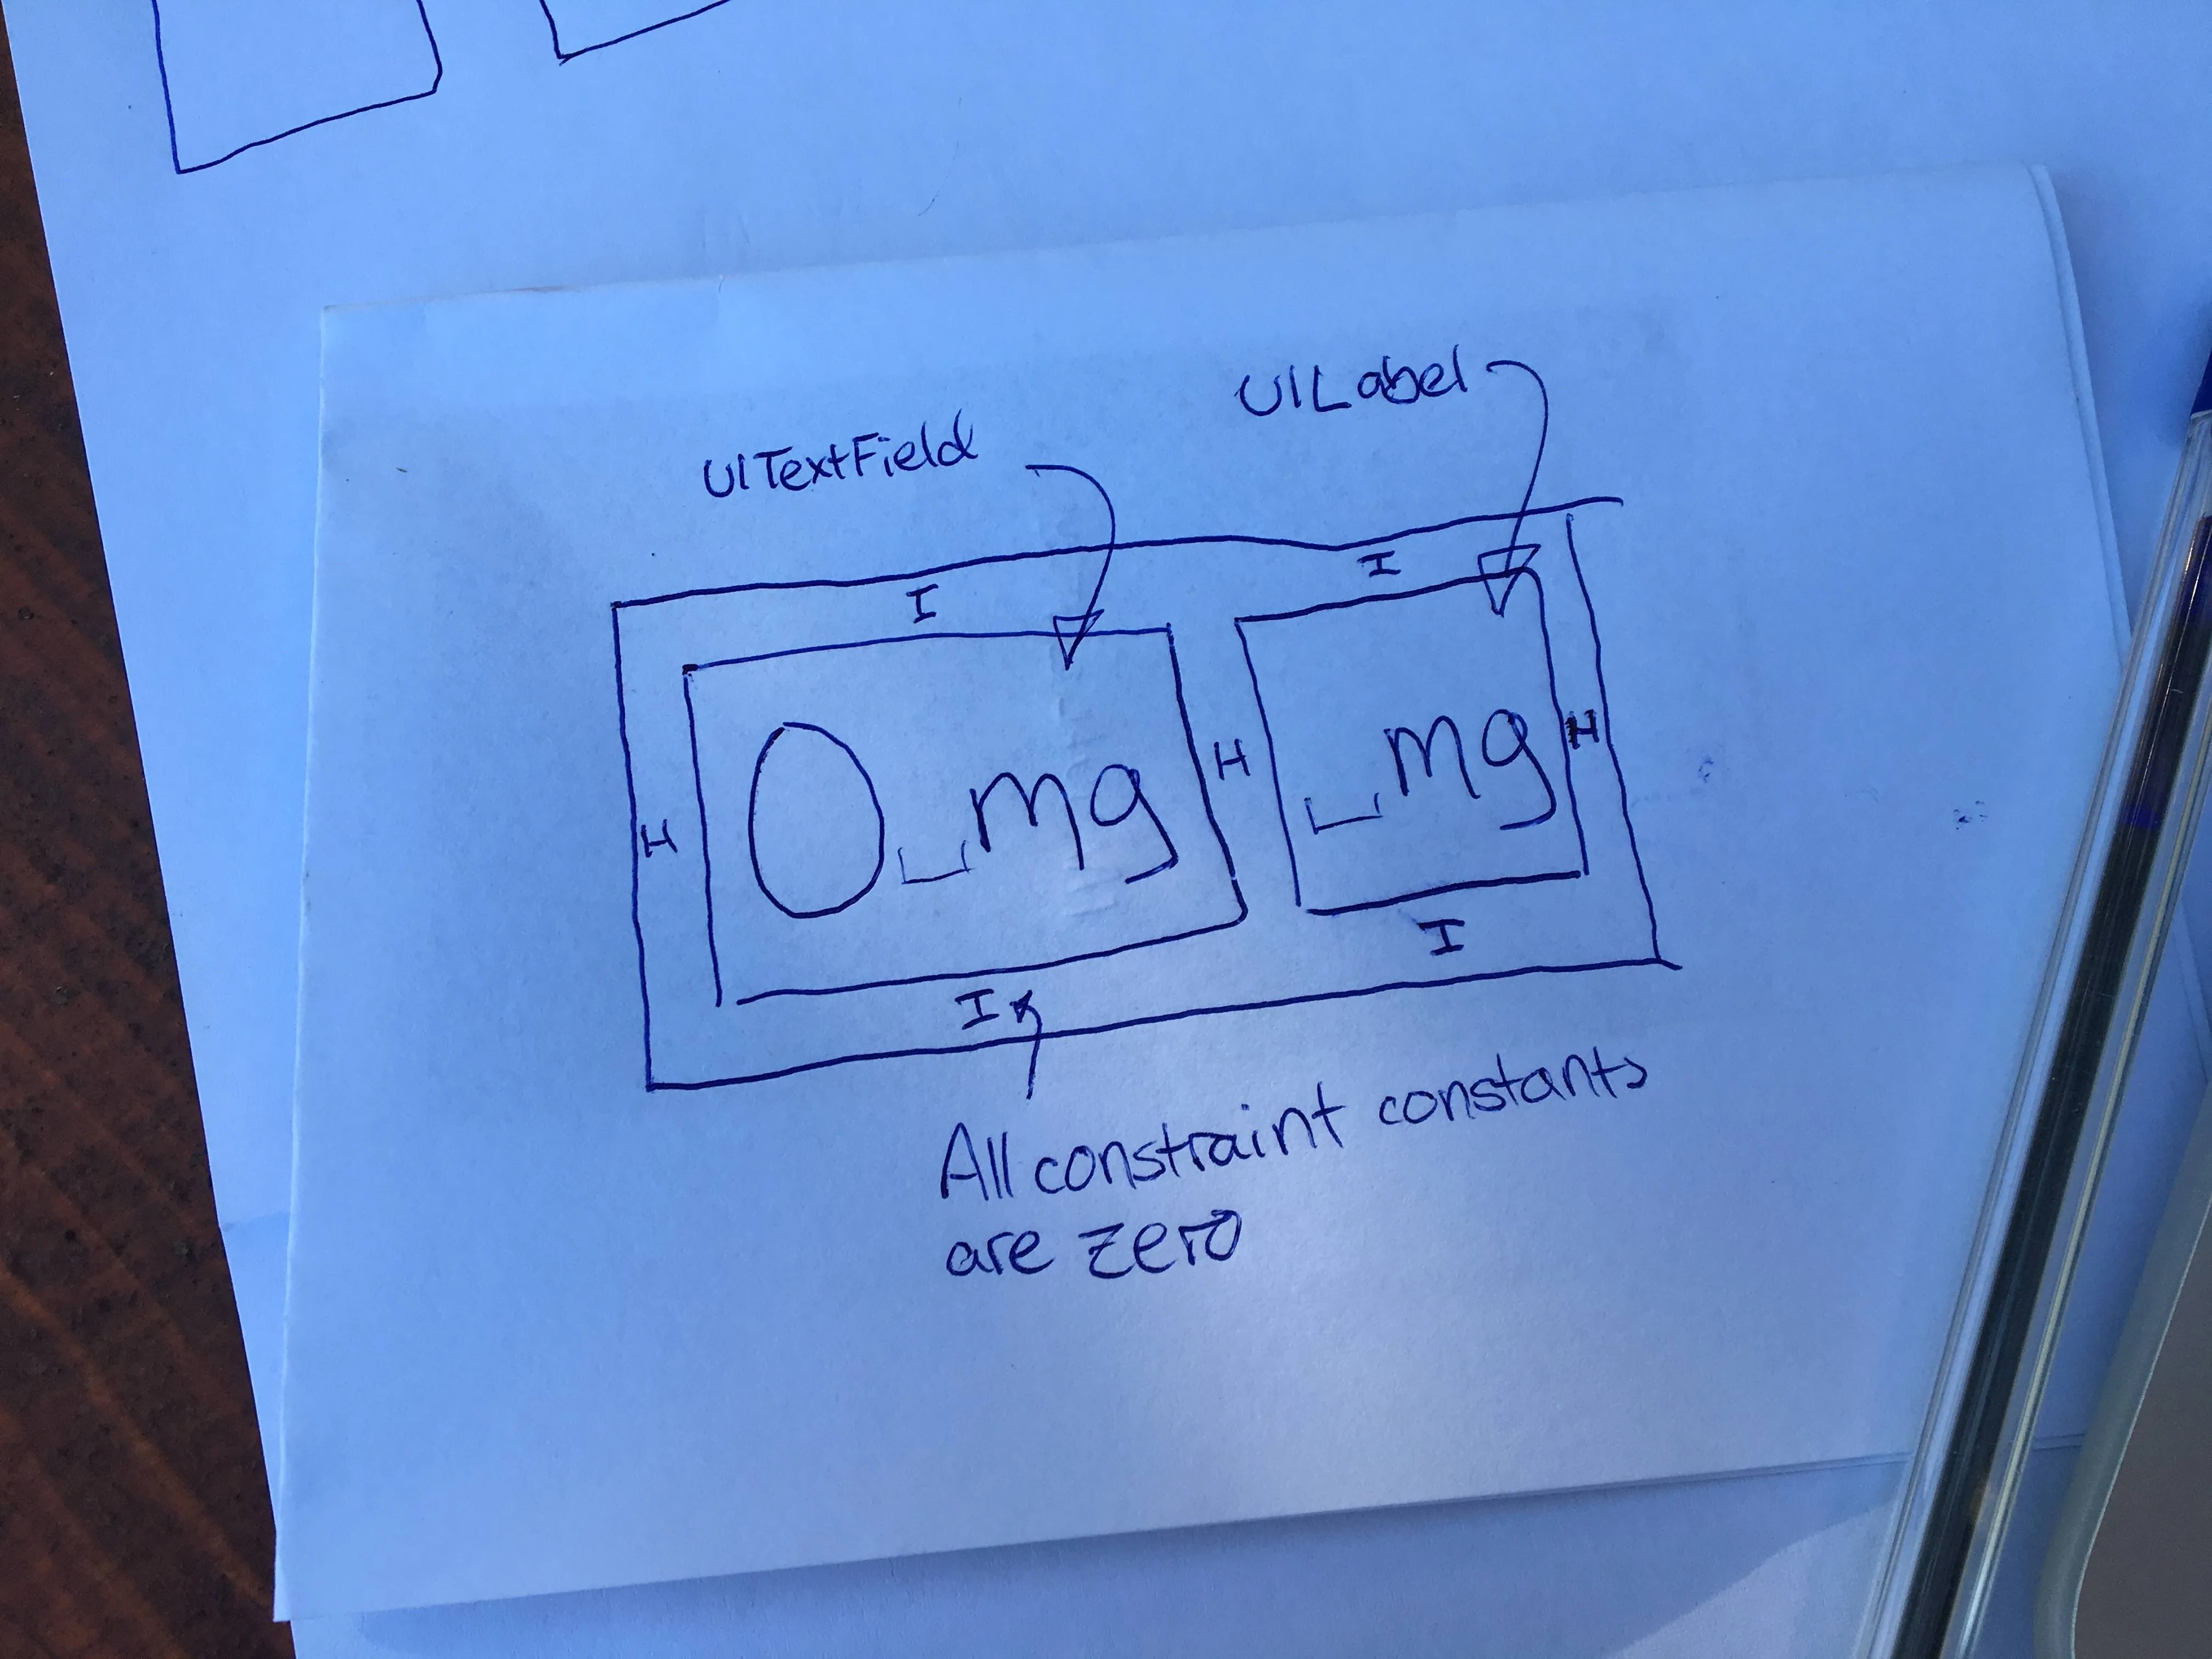 UILabel
UITextField
I I
0␣mg ␣mg
H H H
I I
All constraint constants
are zero